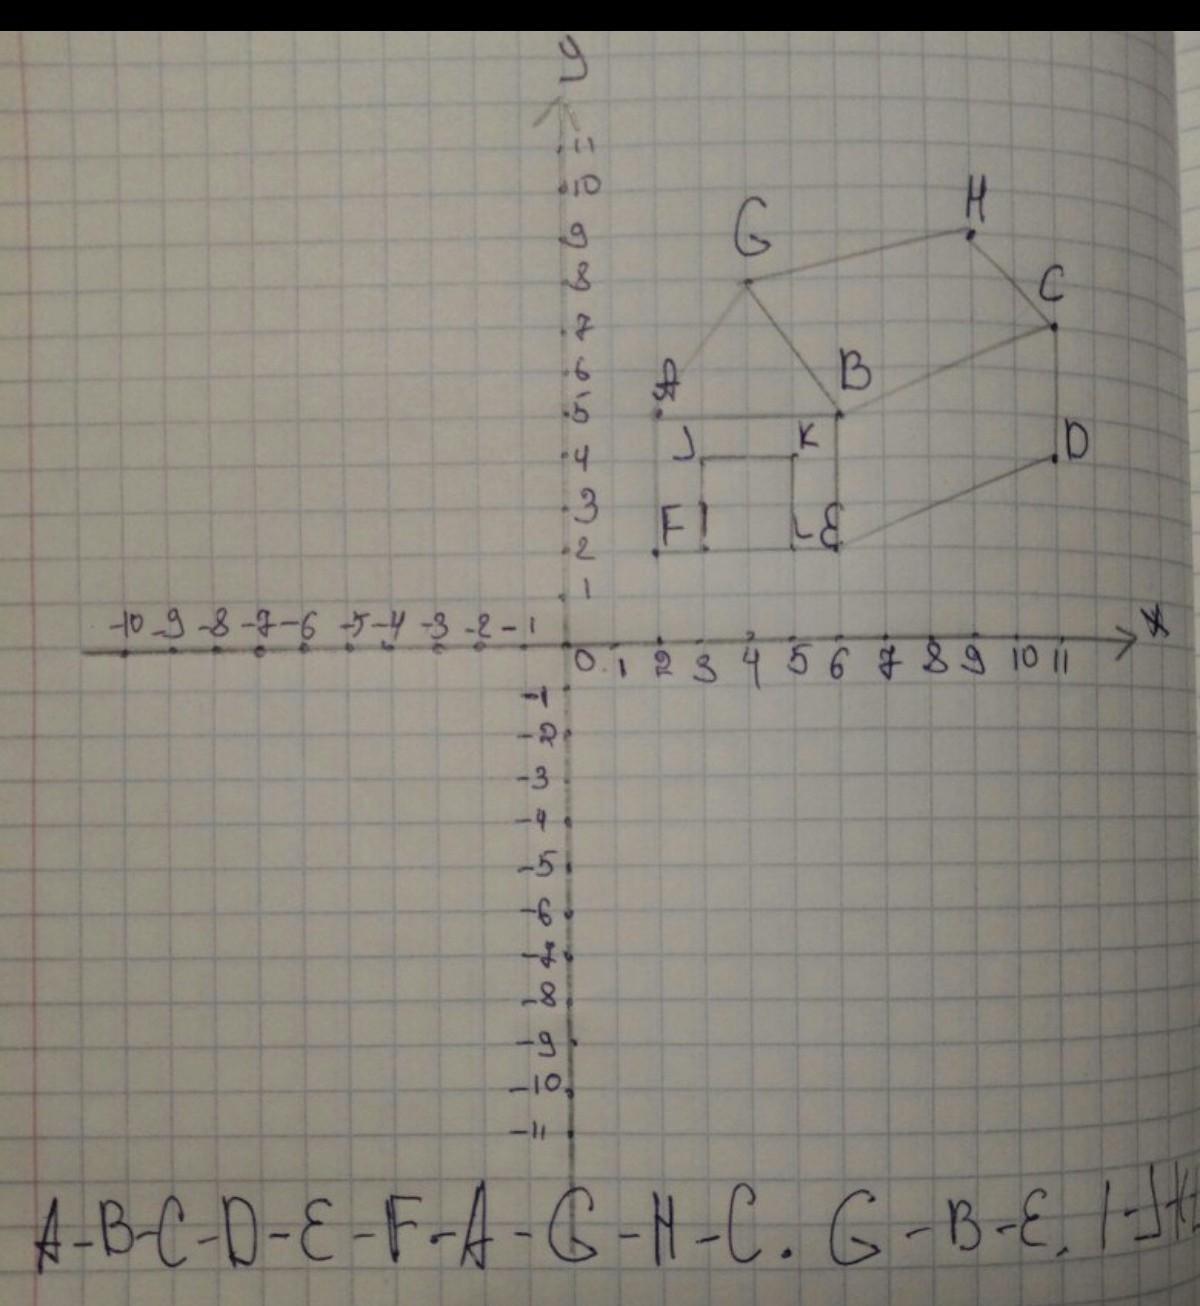 y
11
10
9
8
7
6
5
4
3
2
1
G
H
C
A
B
J
K
D
F
I
L
E
-10 -9 -8 -7 -6 -5 -4 -3 -2 -1
x
0 1 2 3 4 5 6 7 8 9 10 11
-1
-2
-3
-4
-5
-6
-7
-8
-9
-10
-11
A-B-C-D-E-F-A-G-H-C. G-B-E. I-J-K